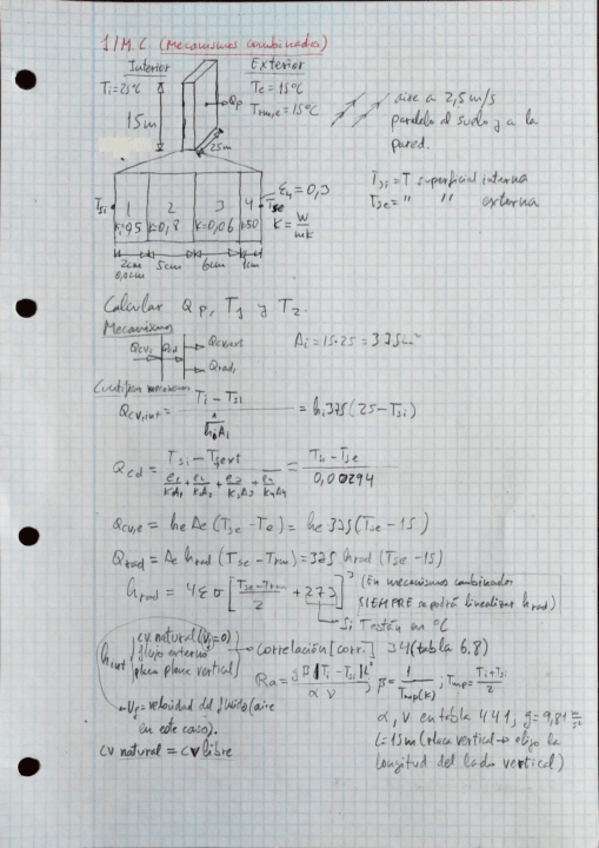 1/M.C (Mecanismos combinados)
Interior Exterior
Ti=25ºC Te=15ºC
Trm,e=15ºC
Qp
15m
25m
aire a 2,5 m/s
paralelo al suelo y a la
pared.
Tsi = T superficial interna
Tse = " " externa
Tsi 1 2 3 4 Tse
ε4=0,3
K=0,8 K=0,06 K=50
K = W/mK
2cm 5cm 6cm 1cm
0,02m
Calcular Qp, T1 y T2.
Mecanismos
Qcv,i Qcd Qcv,ext
Qrad,
Ai = 15·25 = 375m²
Qcv,int = (Ti - Tsi)/(1/(hiAi)) = hi 375(25-Tsi)
Qcd = (Tsi - Tsext)/(e1/K1A1 + e2/K2A2 + e3/K3A3 + e4/K4A4) = (Tsi - Tse)/0,00294
Qcv,e = he Ae (Tse - Te) = he·375(Tse - 15)
Qrad = Ae hrad (Tse - Trm) = 375 hrad (Tse - 15)
hrad = 4εσ[(Tse-Trm)/2 + 273]³ (En mecanismos combinados
SIEMPRE se podrá linealizar hrad)
Si T están en ºC
hint
cv. natural (Vf=0)
flujo externo
placa plana vertical
Correlación [corr.] 34 (tabla 6.8)
Ra = gβ|Ti - Tsi|L³/(α ν) ; β = 1/Tmp(K) ; Tmp = (Ti+Tsi)/2
Vf = velocidad del fluido (aire
en este caso).
α, ν en tabla 441, g=9,81 m/s²
L=15m (placa vertical → elijo la
longitud del lado vertical)
cv natural = cv libre